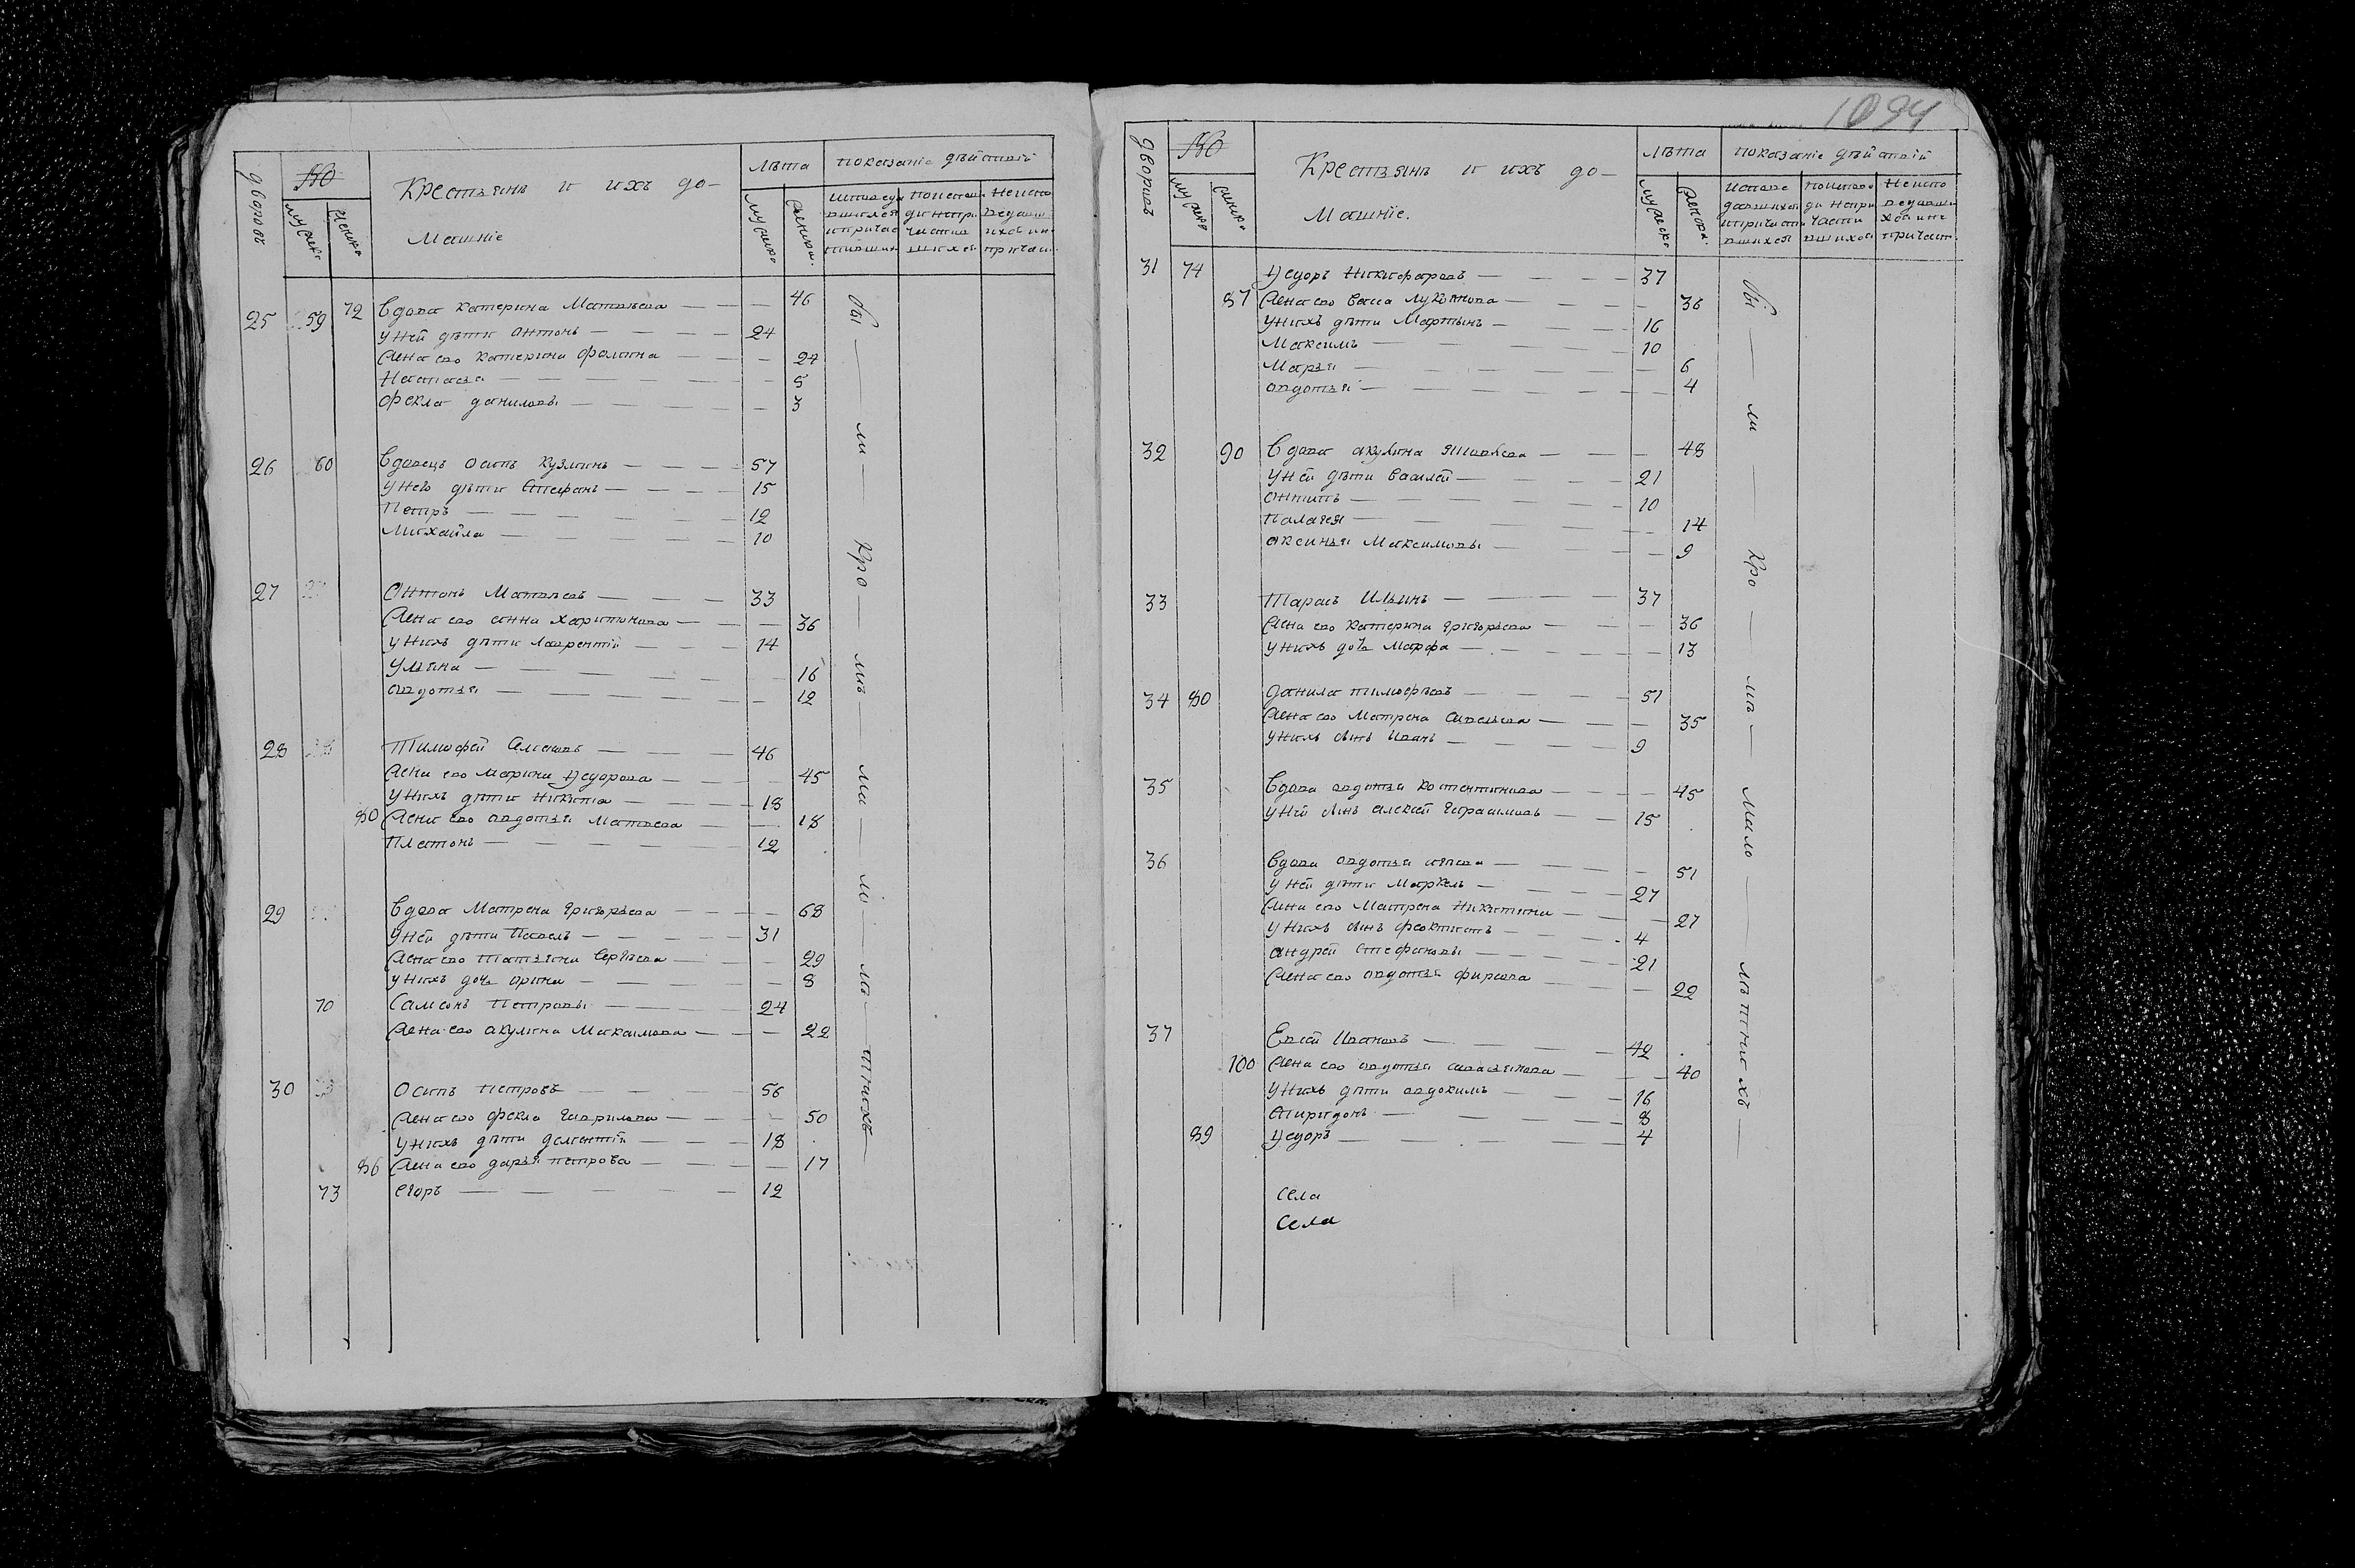 дворовъ
мужеска
женска
Крестьянъ и ихъ до-
машніе
лѣта
мужеска
женска
показаніе дѣйствій
25 59 72 Вдова Катерина Матвѣева — 46
у ней дѣти Антонъ — 24
Жена его Катерина Фомина — 24
Настасья — 5
Фекла Даниловы — 3
26 60 Вдовецъ Осипъ Кузминъ — 57
у него дѣти Стефанъ — 15
Петръ — 12
Михайла — 10
27 Антонъ Матвѣевъ — 33
Жена его Анна Харитонова — 36
у нихъ дѣти Лаврентій — 14
Ульяна — 16
Авдотья — 12
28 Тимофей Семеновъ — 46
Жена его Марина Ѳедорова — 45
у нихъ дѣти Никита — 18
80 Жена его Авдотья Матвеева — 18
Платонъ — 12
29 Вдова Матрена Григорьева — 68
у ней дѣти Павелъ — 31
Жена его Татьяна Сергѣева — 29
у нихъ дочь Арина — 8
70 Самсонъ Петровы — 24
Жена его Акулина Максимова — 22
30 Осипъ Петровъ — 56
Жена его Фекла Гаврилова — 50
у нихъ дѣти Дементій — 18
86 Жена его Дарья Петрова — 17
73 Егоръ — 12
бы — ли — Кро — мѣ — ма — ло — лѣ — тнихъ —
1094
дворовъ
мужеска
женска
Крестьянъ и ихъ до-
машніе.
лѣта
мужеска
женска
показаніе дѣйствій
31 74 Ѳедоръ Никифоровъ — 37
87 Жена его Васса Лукьянова — 36
у нихъ дѣти Мартынъ — 16
Максимъ — 10
Марья — 6
Авдотья — 4
32 90 Вдова Акулина — 48
у ней дѣти Василей — 21
Антипъ — 10
Палагея — 14
Аксинья Максимовы — 9
33 Тарасъ Ильинъ — 37
Жена его Катерина Григорьева — 36
у нихъ дочь Марфа — 13
34 80 Данила Тимофѣевъ — 51
Жена его Матрена — 35
у нихъ сынъ Иванъ — 9
35 Вдова Авдотья Костентинова — 45
у ней сынъ Алексей Герасимовъ — 15
36 Вдова Авдотья — 51
у ней дѣти Маркелъ — 27
Жена его Матрена Никитина — 27
у нихъ сынъ Феоктистъ — 4
Андрей Стефановы — 21
Жена его Авдотья Фирсова — 22
37 Евсей Ивановъ — 42
100 Жена его Авдотья — 40
у нихъ дѣти Авдокимъ — 16
Спиридонъ — 8
89 Ѳедоръ — 4
бы — ли — Кро — мѣ — мало — лѣтнихъ —
Села
Села